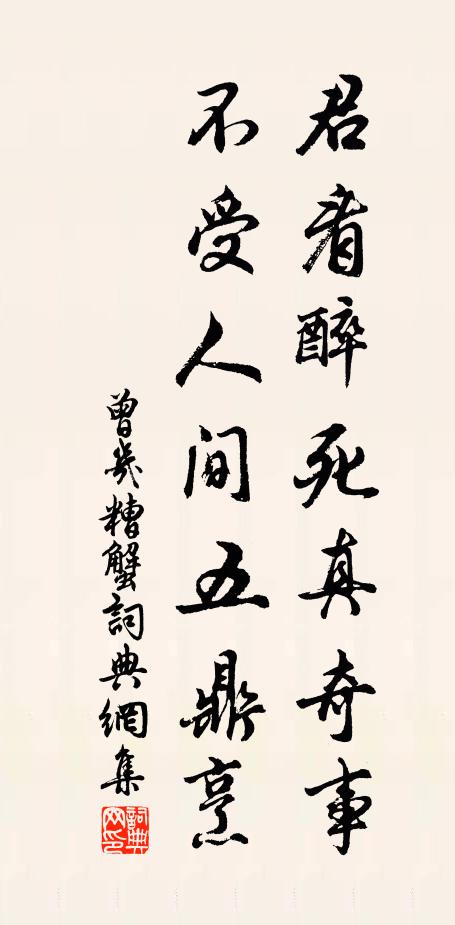 君看醉死真奇事
不受人间五鼎烹
曾幾糟蟹詞典網集
詞典网印